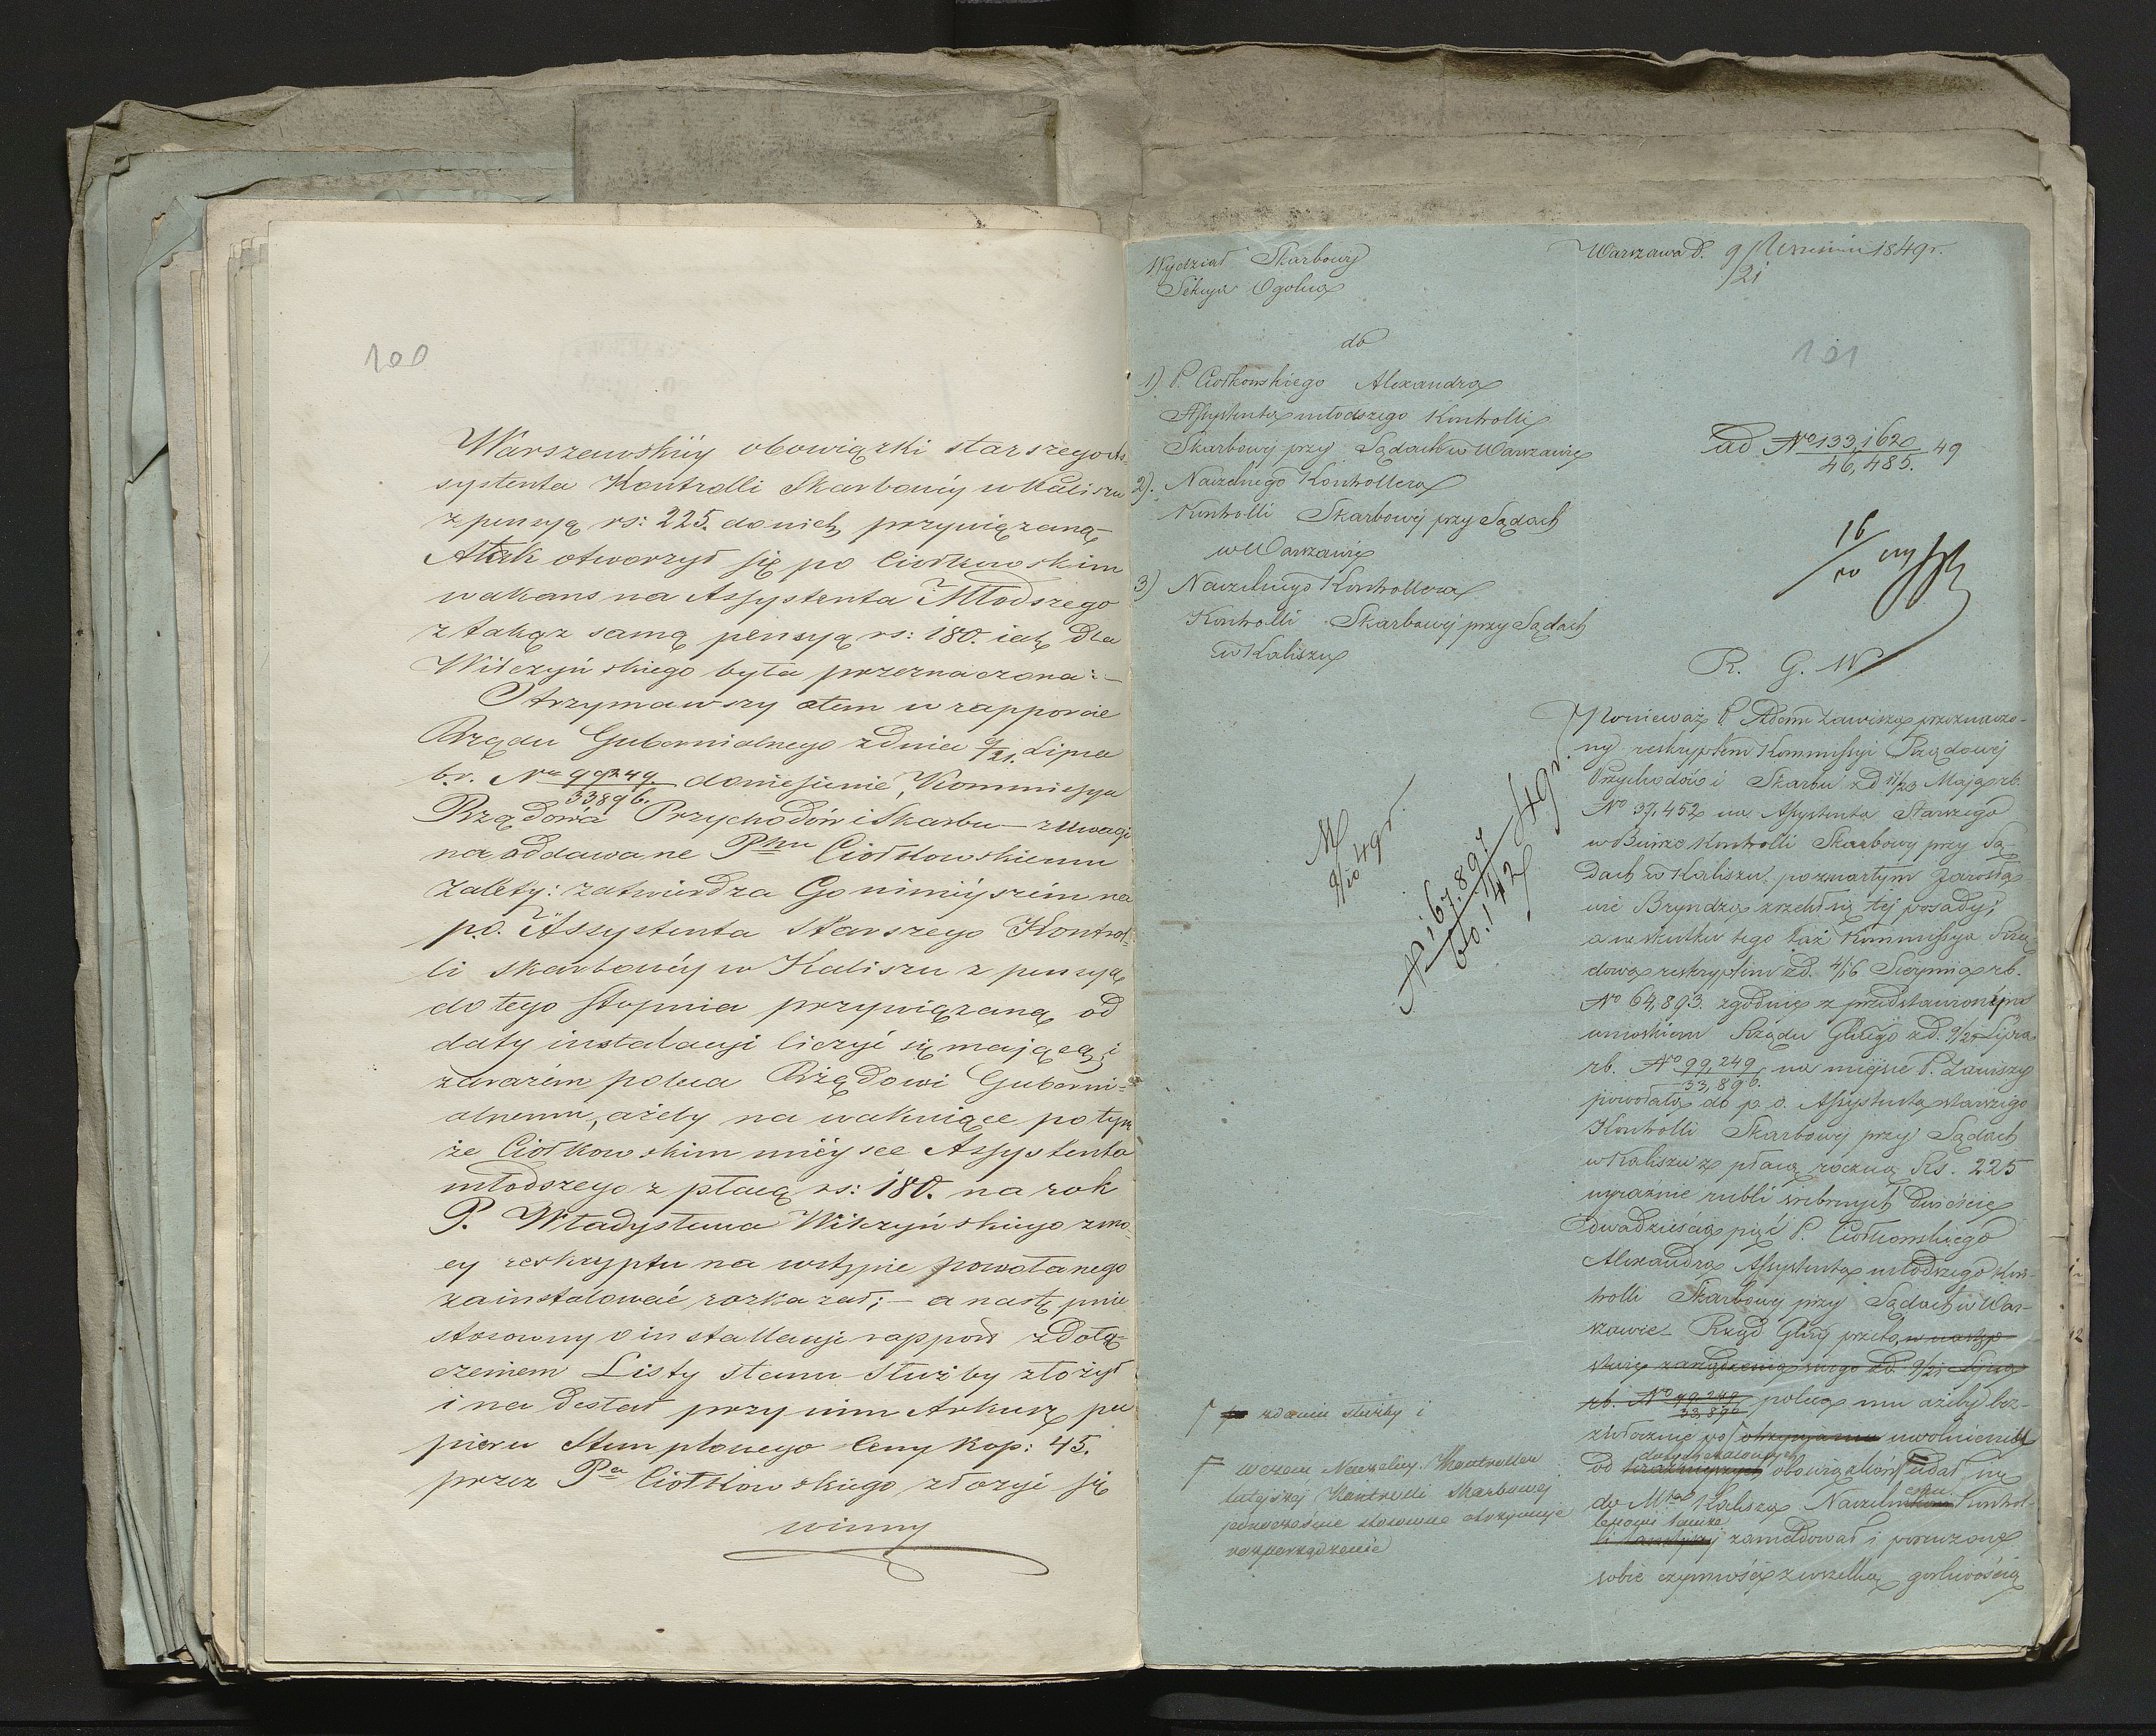 100
Warszewskiéy obowiązki starszego As-
systenta Kontrolli Skarbowéy w Kaliszu
z pensyą rs: 225. do nich przywiązaną
A tak otworzył się po Ciołkowskim
wakans na Assystenta Młodszego
z takąż samą pensyą rs: 180. iaką dla
Wilczyńskiego była przeznaczona:—
Otrzymawszy o tem w rapporcie
Rządu Gubernialnego z dnia 9/21. Lipca
b.r. Nro 99249/33,896. doniesienie, Kommissya
Rządowa Przychodów i Skarbu — z uwagi
na oddawane Pnu Ciołkowskiemu
zalety: zatwierdza Go ninieyszém na
p.o. Assystenta Starszego Kontrol-
li skarbowéy w Kaliszu z pensyą
do tego stopnia przywiązaną od
daty instalacyi liczyć się mającą; i
zarazém poleca Rządowi Guberni-
alnemu, ażeby na wakuiące po tym
że Ciołkowskim miéysce Assystenta
młodszego z płacą rs: 180. na rok
P. Władysława Wilczyńskiego z mo-
cy reskryptu na wstępie powołanego
zainstalować rozkazał; — a nastę pnie
stosowny o installacyi rapport z dołą-
czeniem Listy Stanu Służby złożył
i nadesłał przy nim Arkusz pa
pieru Stemplowego Ceny Kop: 45.
przez Pa Ciołkowskiego złożyć się
winny
Wydział Skarbowy
Sekcya Ogolna
Warszawa d. 9/21 Września 1849 r.
101
do
1) P. Ciołkowskiego Alexandra
Assystenta młodszego Kontrolli
Skarbowéj przy Sądach w Warszawie
2). Naczelnego Kontrollera
Kontrolli Skarbowéj przy Sądach
w Warszawie
3) Naczelnego Kontrollera
Kontrolli Skarbowéj przy Sądach
w Kaliszu
ad No 133,162/46,485. 49
16/10
R. G. W
9/10 49 r.
N 167.897/60.142 49 r.
Ponieważ P. Adam Zawisza przeznaczo-
ny reskryptem Kommissyi Rządowéj
Przychodów i Skarbu z d 11/23 Maja rb.
No 37,452 na Assystenta Starszego
w Biurze Kontrolli Skarbowéj przy Są-
dach w Kaliszu po zmarłym Jarosła-
wie Bryndza zrzekł się téj posady;
a w skutku tego taż Kommissya Rzą-
dowa reskryptem z d. 4/16 Sierpnia rb.
No 64,893. zgodnie z przedstawionym
wnioskiem Rządu Glnego z d. 9/21 Lipca
rb. No 99,249/33,896. na miéjsce P. Zawiszy
powołała do p. o. Assystenta starszego
Kontrolli Skarbowéj przy Sądach
w Kaliszu z płacą roczną Rs. 225
wyraźnie rubli srebrnych dwieście
dwadzieścia pięć P. Ciołkowskiego
Alexandra Assystenta młodszego Kon-
trolli Skarbowéj przy Sądach w War-
szawie. Rząd Glny przeto w następ-
stwie zarządzenia swego z d. 9/21 Lipca
rb. No 99,249/33,896 poleca mu ażeby bez-
zwłocznie po otrzymaniu uwolnienia
dotychczasowych
od obowiązków udał się
do Mta Kalisza Naczelnemu Kontrol-
lerowi tamże
zameldował i poruczone
sobie czynności z wszelką gorliwością
zdaniu służby i
w czem Naczelny Kontroller
tutejszéj Kontrolli Skarbowéj
jednocześnie stosowne otrzymuje
rozporządzenie